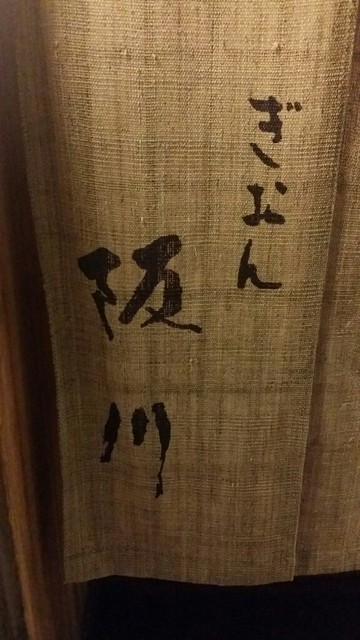 ぎおん
阪川